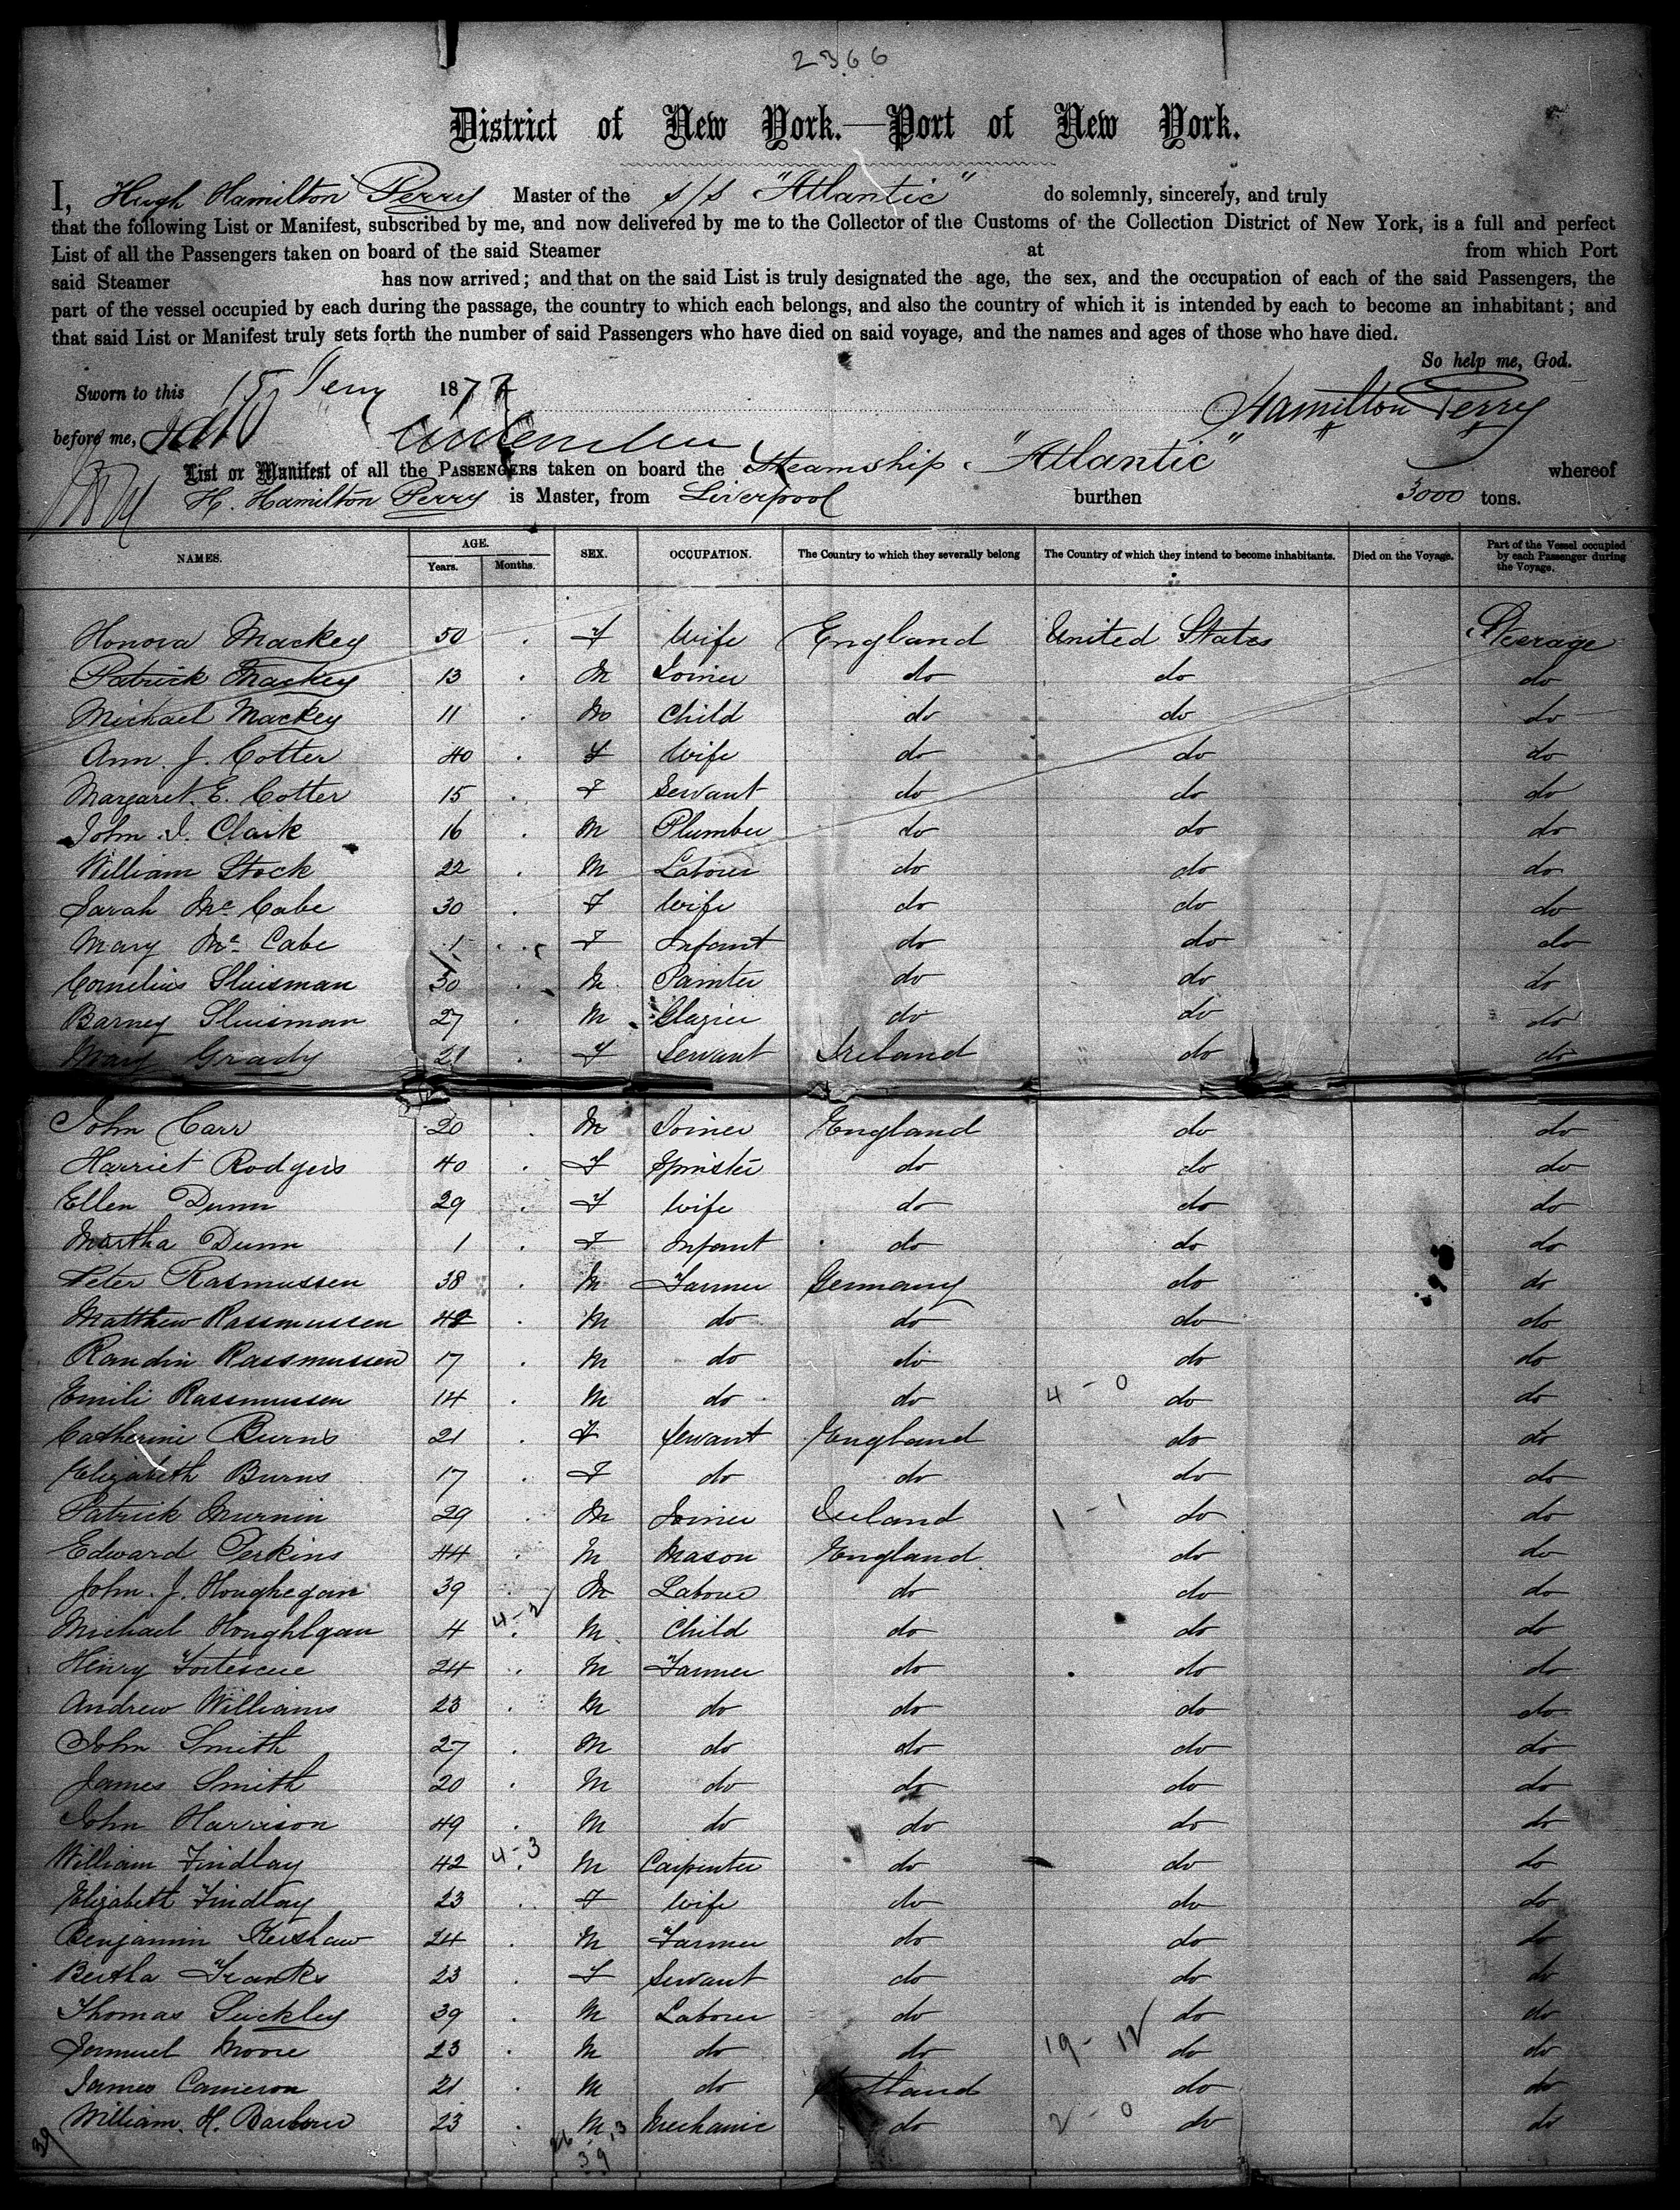 2366
District of New York.—Port of New York.
I, Hugh Hamilton Perry Master of the s/s "Atlantic" do solemnly, sincerely, and truly
that the following List or Manifest, subscribed by me, and now delivered by me to the Collector of the Customs of the Collection District of New York, is a full and perfect
List of all the Passengers taken on board of the said Steamer at from which Port
said Steamer has now arrived; and that on the said List is truly designated the age, the sex, and the occupation of each of the said Passengers, the
part of the vessel occupied by each during the passage, the country to which each belongs, and also the country of which it is intended by each to become an inhabitant; and
that said List or Manifest truly sets forth the number of said Passengers who have died on said voyage, and the names and ages of those who have died.
So help me, God.
Sworn to this 15 1877 Hamilton Perry
before me,
List or Manifest of all the PASSENGERS taken on board the Steamship "Atlantic" whereof
H. Hamilton Perry is Master, from Liverpool burthen 3000 tons.
NAMES. AGE. Years. Months. SEX. OCCUPATION. The Country to which they severally belong The Country of which they intend to become inhabitants. Died on the Voyage. Part of the Vessel occupied by each Passenger during the Voyage.
Honora Mackey 50 F Wife England United States Steerage
Patrick Mackey 13 M Joiner do do do
Michael Mackey 11 M Child do do do
Ann. J. Cotter 40 F Wife do do do
Margaret. E. Cotter 15 F Servant do do do
John. I. Clark 16 M Plumber do do do
William Stock 22 M Laborer do do do
Sarah Mc Cabe 30 F Wife do do do
Mary Mc Cabe 1 F Infant do do do
Cornelius Sluisman 30 M Painter do do do
Barney Sluisman 27 M Glazier do do do
Mary Grady 21 F Servant Ireland do do
John Carr 20 M Joiner England do do
Harriet Rodgers 40 F Spinster do do do
Ellen Dunn 29 F Wife do do do
Martha Dunn 1 F Infant do do do
Peter Rasmussen 38 M Farmer Germany do do
Matthew Rassmussen 42 M do do do do
Randin Rassmussen 17 M do do do do
Emili Rassmussen 14 M do do 4 - 0 do do
Catherine Burns 21 F Servant England do do
Elizabeth Burns 17 F do do do do
Patrick Murnin 29 M Joiner Ireland 1 - 1 do do
Edward Perkins 44 M Mason England do do
John. J. Houghegan 39 M Laborer do do do
Michael Houghlgan 4 4-2 M Child do do do
Henry Fortescue 24 M Farmer do do do
Andrew Williams 23 M do do do do
John Smith 27 M do do do do
James Smith 20 M do do do do
John Harrison 49 M do do do do
William Findlay 42 4-3 M Carpenter do do do
Elizabeth Findlay 23 F Wife do do do
Benjamin Kershaw 24 M Farmer do do do
Bertha Franks 23 F Servant do do do
Thomas Suckley 39 M Laborer do do do
Samuel Moore 23 M do do 19 - 12 do do
James Cameron 21 M do Scotland do do
William. H. Barbour 23 M Mechanic do 2 - 0 do do
39 26 13
39